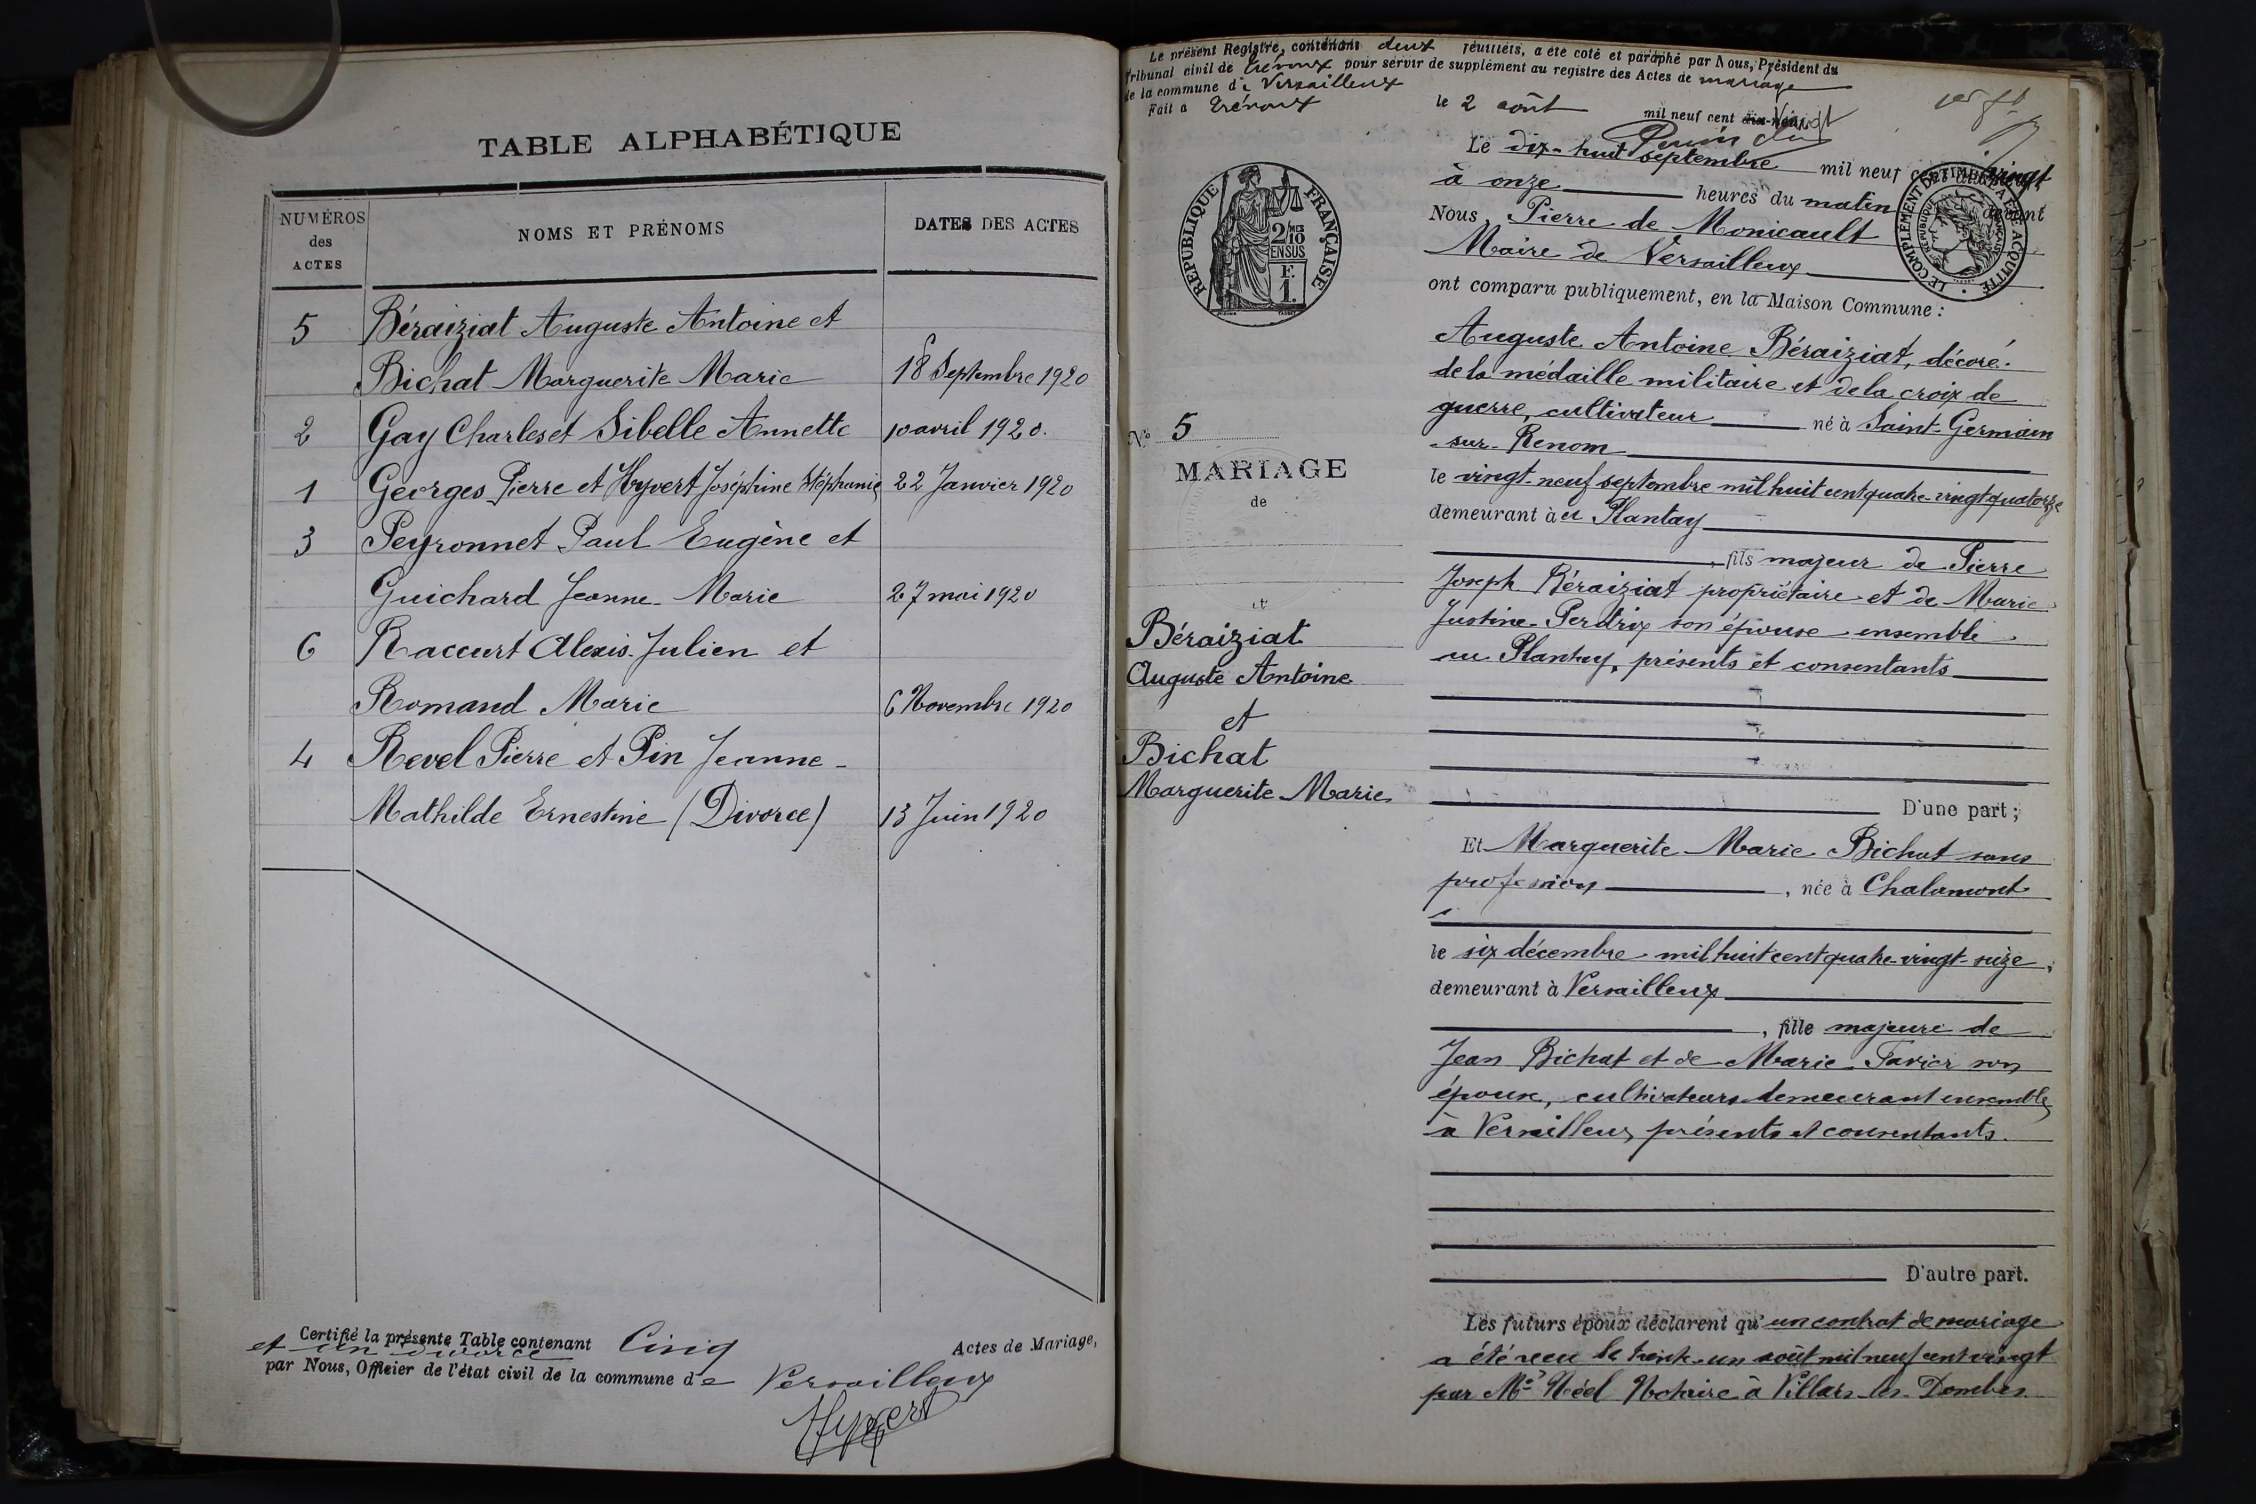 TABLE ALPHABÉTIQUE
NUMÉROS
des
ACTES
NOMS ET PRÉNOMS
DATES DES ACTES
5 Béraiziat Auguste Antoine et
Bichat Marguerite Marie 18 Septembre 1920
2 Gay Charles et Sibelle Annette 10 avril 1920.
1 Georges Pierre et Hyvert Joséphine Stéphanie 22 Janvier 1920
3 Peyronnet Paul Eugène et
Guichard Jeanne-Marie 27 mai 1920
6 Raccurt Alexis-Julien et
Romand Marie 6 Novembre 1920
4 Revel Pierre et Pin Jeanne-
Mathilde Ernestine (Divorce) 13 Juin 1920
Certifié la présente Table contenant Cinq Actes de Mariage,
et un divorce
par Nous, Officier de l'état civil de la commune de Versailleux
Hyvert
Le présent Registre, contenant deux feuillets, a été coté et paraphé par Nous, Président du
Tribunal civil de Trévoux pour servir de supplément au registre des Actes de mariage
de la commune de Versailleux
Fait à Trévoux le 2 août mil neuf cent dix-neuf vingt
RÉPUBLIQUE FRANÇAISE
2/10
EN SUS
F.
1.
LE COMPLÉMENT DE TIMBRE A ÉTÉ ACQUITTÉ
N° 5
MARIAGE
de
et
Béraiziat
Auguste Antoine
et
Bichat
Marguerite Marie
Le dix-huit septembre mil neuf cent vingt
à onze heures du matin devant
Nous, Pierre de Monicault
Maire de Versailleux
ont comparu publiquement, en la Maison Commune :
Auguste Antoine Béraiziat, décoré
de la médaille militaire et de la croix de
guerre, cultivateur né à Saint-Germain
-sur-Renom
le vingt-neuf septembre mil huit cent quatre-vingt quatorze
demeurant à u Plantay
, fils majeur de Pierre
Joseph Béraiziat propriétaire et de Marie
Justine Perdrix son épouse ensemble
au Plantay, présents et consentants
D'une part ;
Et Marguerite Marie Bichat sans
profession , née à Chalamont
le six décembre mil huit cent quatre-vingt-seize,
demeurant à Versailleux
, fille majeure de
Jean Bichat et de Marie Favier son
épouse, cultivateurs demeurant ensemble
à Versailleux présents et consentants.
D'autre part.
Les futurs époux déclarent qu'un contrat de mariage
a été reçu le trente-un août mil neuf cent vingt
par Me Néel Notaire à Villars-les-Dombes